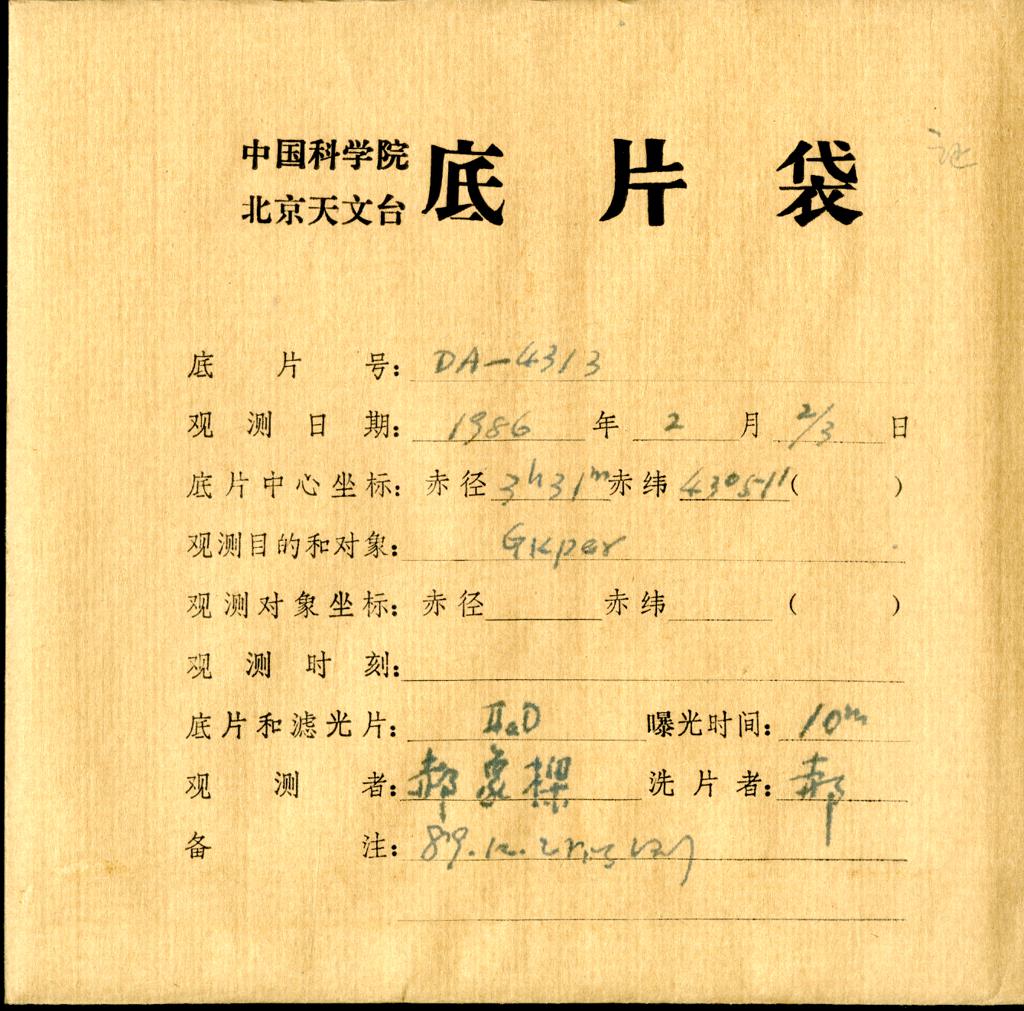 中国科学院
北京天文台
底片袋
底片号: DA-4313
观测日期: 1986 年 2 月 2/3 日
底片中心坐标: 赤径 3h31m 赤纬 43°51' ( )
观测目的和对象: GKper
观测对象坐标: 赤径 赤纬 ( )
观测时刻:
底片和滤光片: IIaD 曝光时间: 10m
观测者: 郝象樑 洗片者: 郝
备注: 89.12.